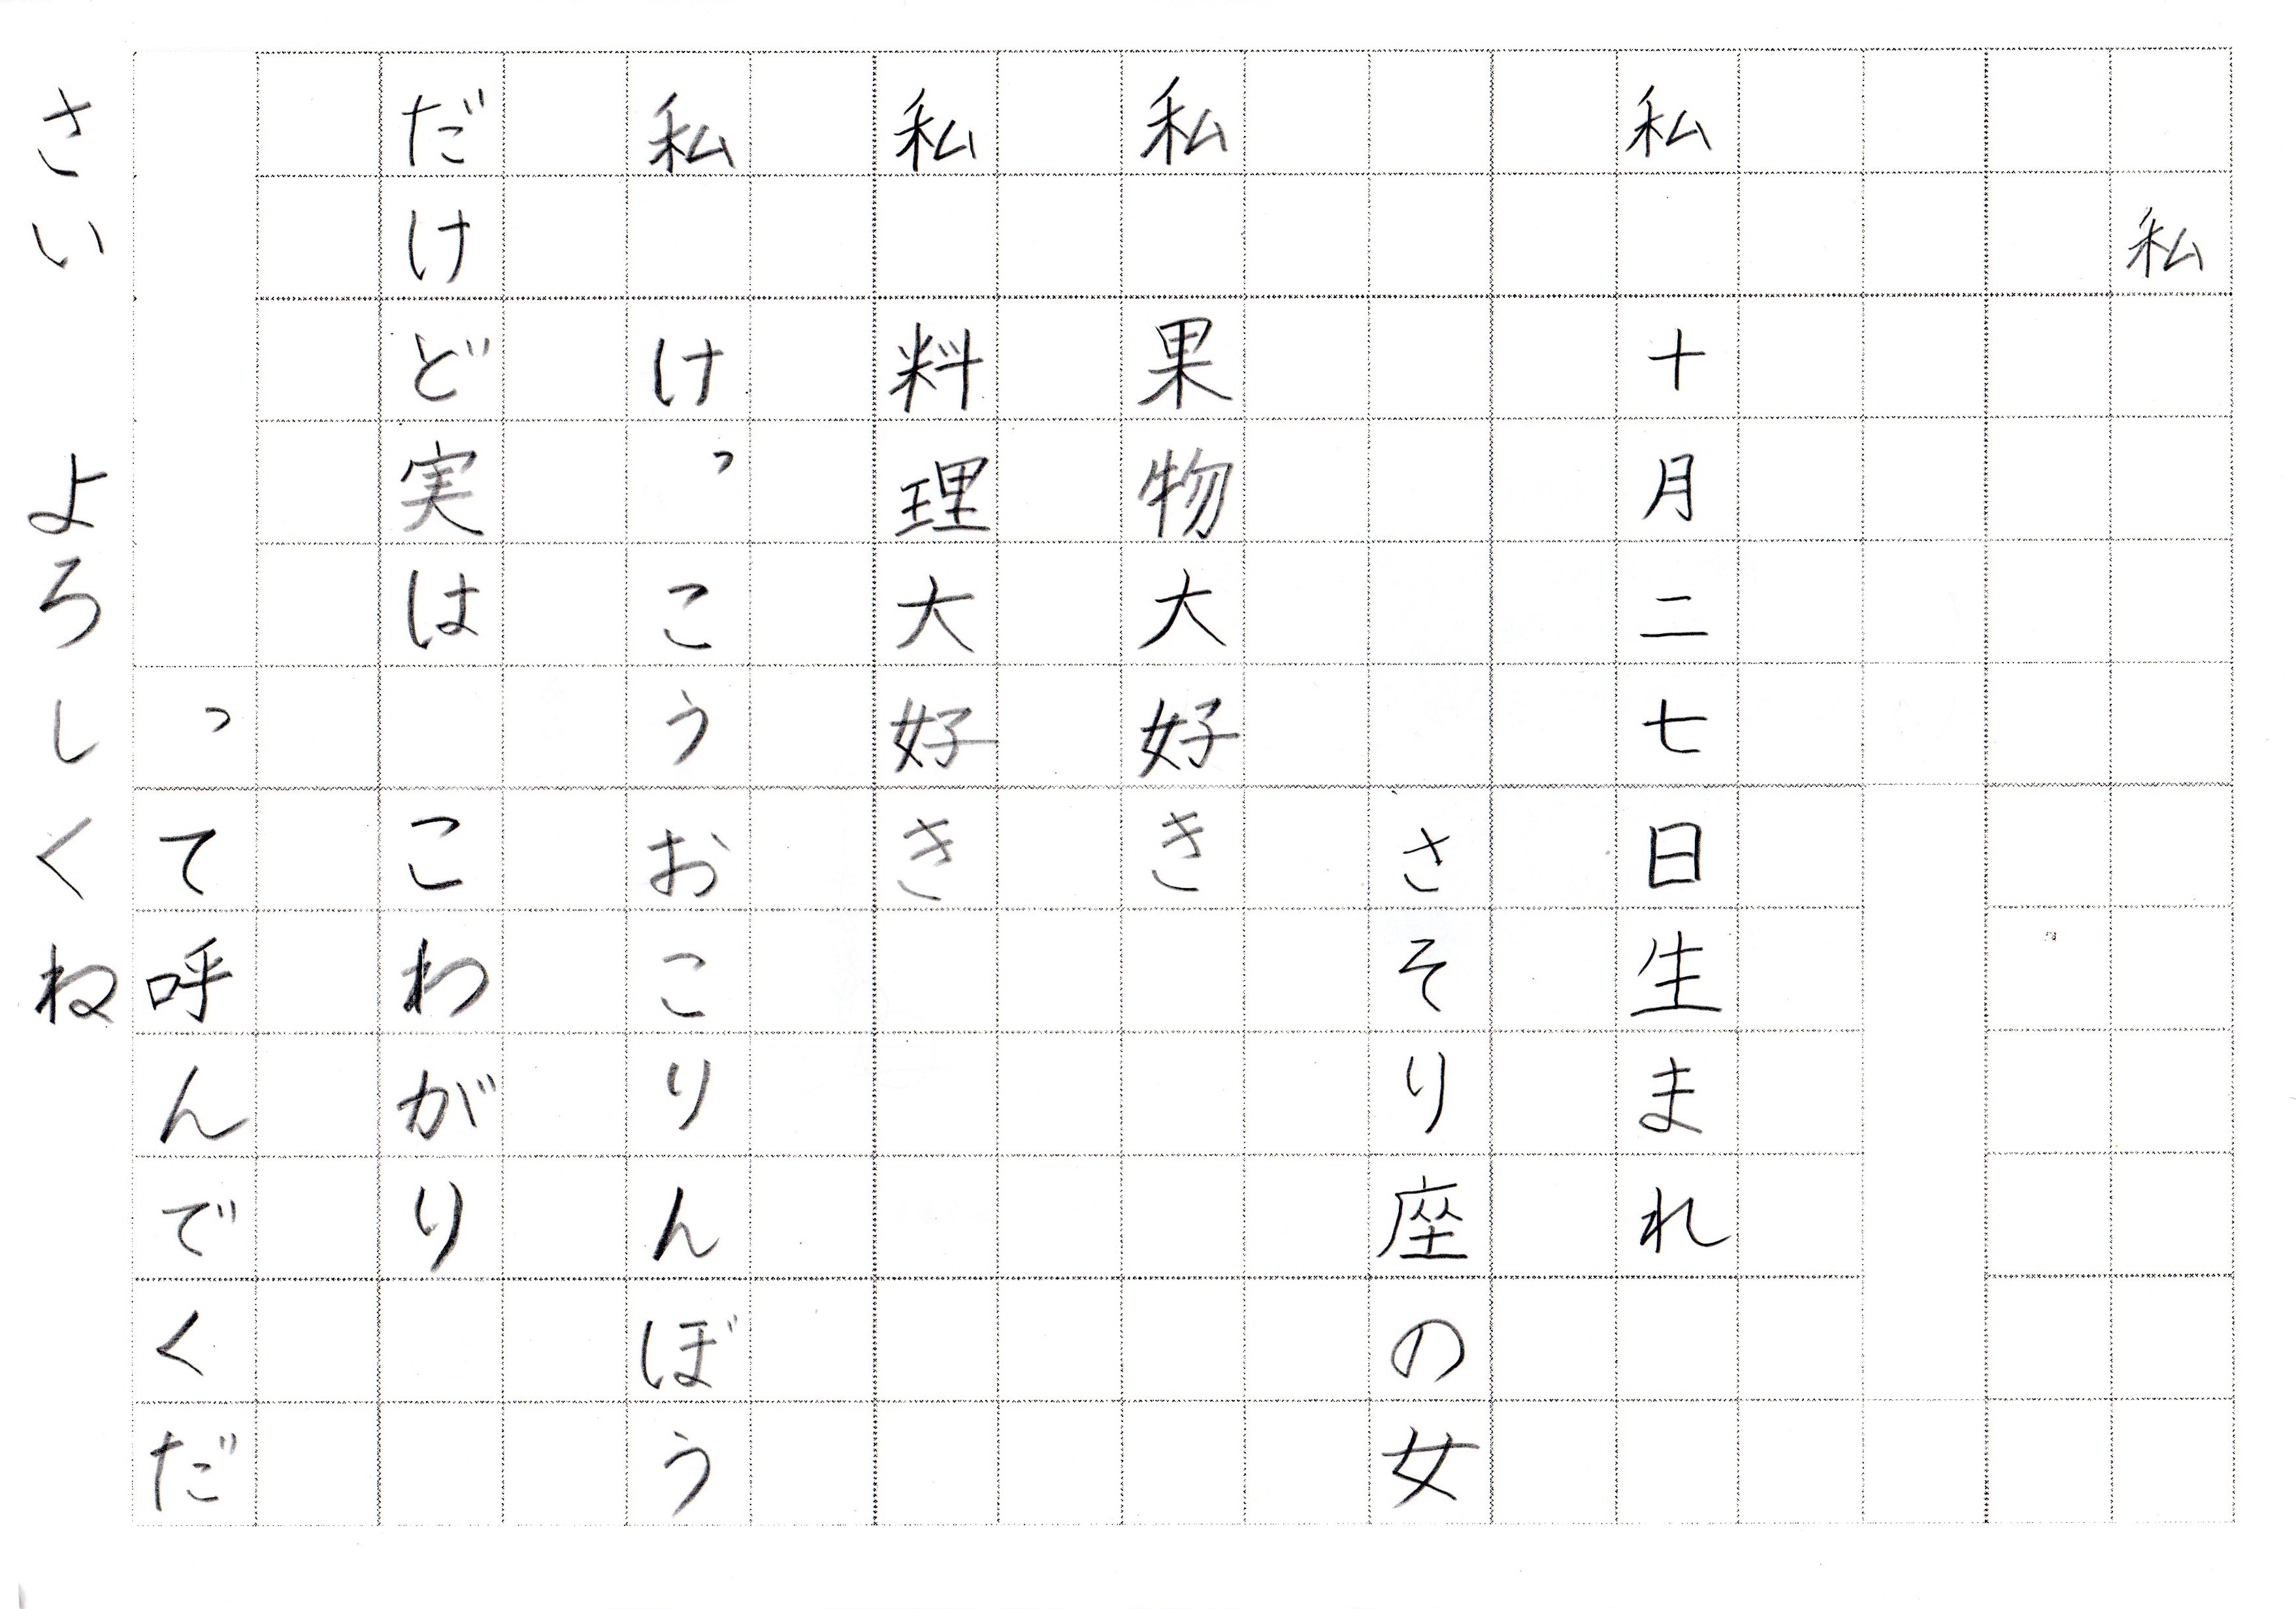 私
私　十月二七日生まれ
さそり座の女
私　果物大好き
私　料理大好き
私　けっこうおこりんぼう
だけど実は　こわがり
って呼んでくだ
さい　よろしくね